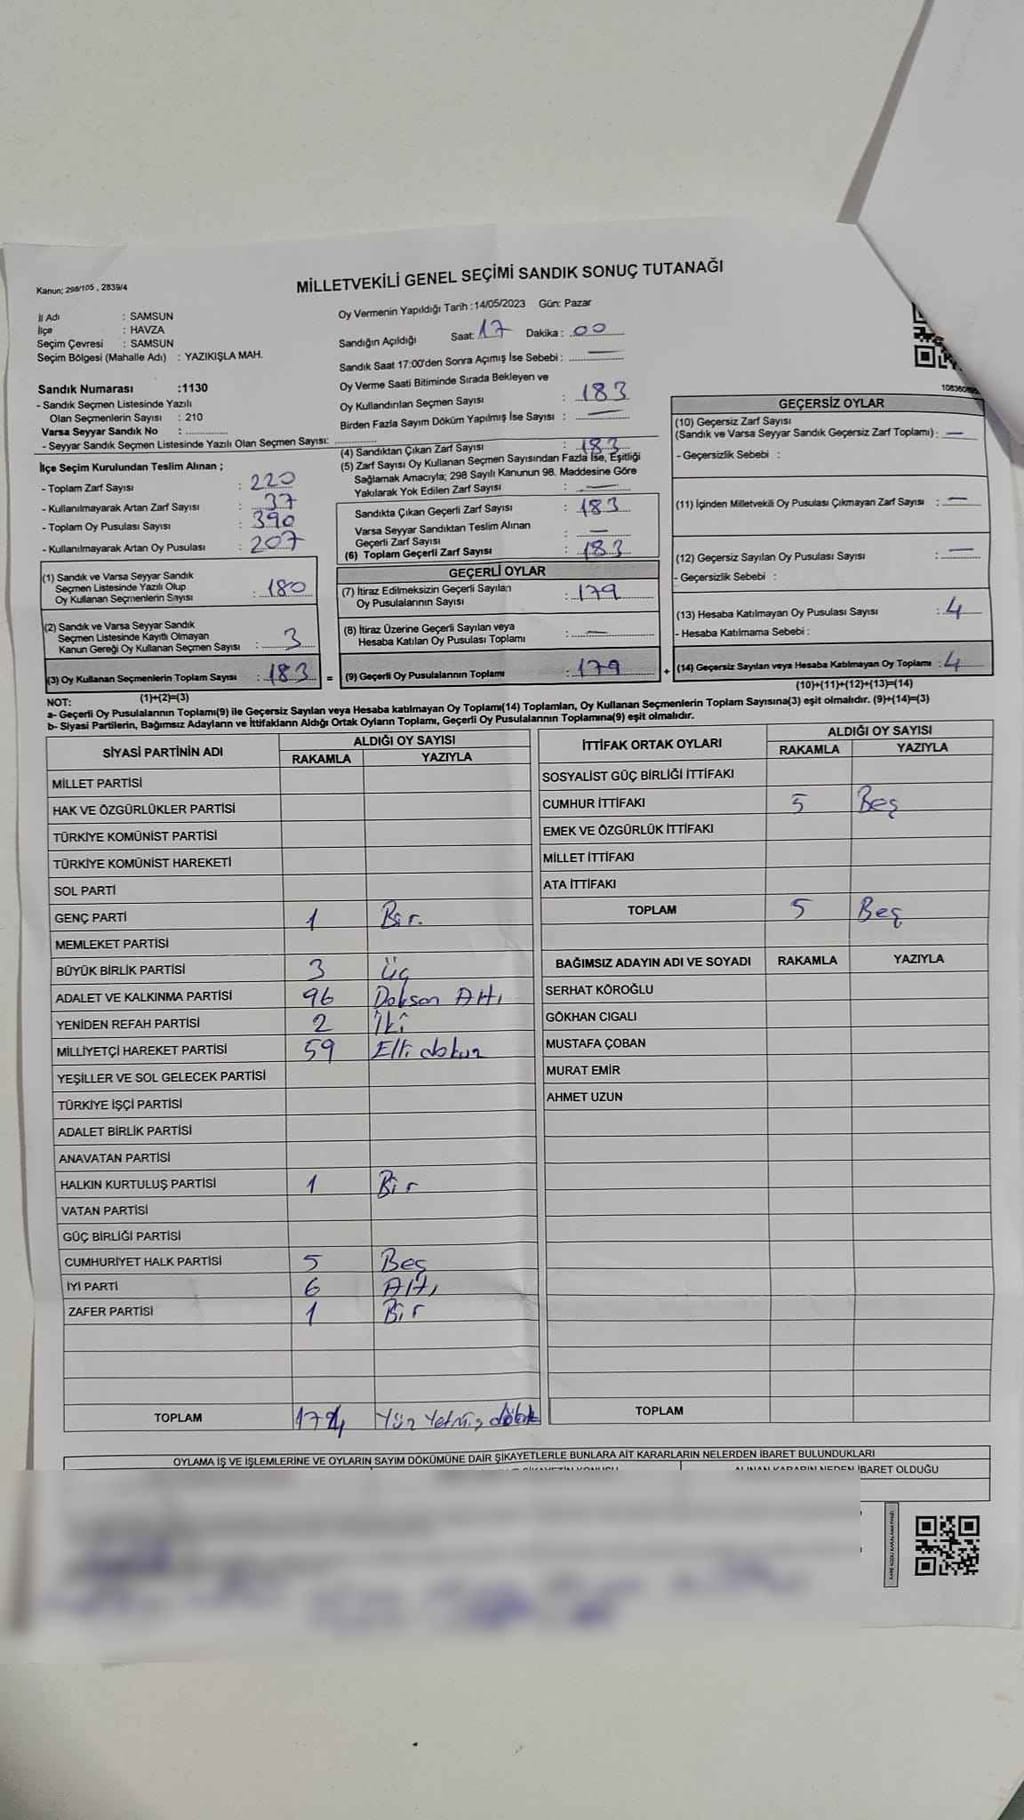 Kanun; 298/105 , 2839/4
MİLLETVEKİLİ GENEL SEÇİMİ SANDIK SONUÇ TUTANAĞI
İl Adı : SAMSUN
İlçe : HAVZA
Seçim Çevresi : SAMSUN
Seçim Bölgesi (Mahalle Adı) : YAZIKIŞLA MAH.
Sandık Numarası :1130
- Sandık Seçmen Listesinde Yazılı
Olan Seçmenlerin Sayısı : 210
Varsa Seyyar Sandık No :
- Seyyar Sandık Seçmen Listesinde Yazılı Olan Seçmen Sayısı:
Oy Vermenin Yapıldığı Tarih : 14/05/2023 Gün: Pazar
Sandığın Açıldığı Saat: 17 Dakika : 00
Sandık Saat 17:00'den Sonra Açımış İse Sebebi : —
Oy Verme Saati Bitiminde Sırada Bekleyen ve
Oy Kullandırılan Seçmen Sayısı : 183
Birden Fazla Sayım Döküm Yapılmış İse Sayısı : —
İlçe Seçim Kurulundan Teslim Alınan ;
- Toplam Zarf Sayısı : 220
- Kullanılmayarak Artan Zarf Sayısı : 37
- Toplam Oy Pusulası Sayısı : 390
- Kullanılmayarak Artan Oy Pusulası : 207
(1) Sandık ve Varsa Seyyar Sandık
Seçmen Listesinde Yazılı Olup
Oy Kullanan Seçmenlerin Sayısı : 180
(2) Sandık ve Varsa Seyyar Sandık
Seçmen Listesinde Kayıtlı Olmayan
Kanun Gereği Oy Kullanan Seçmen Sayısı : 3
(3) Oy Kullanan Seçmenlerin Toplam Sayısı : 183 =
(1)+(2)=(3)
(4) Sandıktan Çıkan Zarf Sayısı : 183
(5) Zarf Sayısı Oy Kullanan Seçmen Sayısından Fazla İse, Eşitliği
Sağlamak Amacıyla; 298 Sayılı Kanunun 98. Maddesine Göre
Yakılarak Yok Edilen Zarf Sayısı : —
Sandıkta Çıkan Geçerli Zarf Sayısı : 183
Varsa Seyyar Sandıktan Teslim Alınan
Geçerli Zarf Sayısı : —
(6) Toplam Geçerli Zarf Sayısı : 183
GEÇERLİ OYLAR
(7) İtiraz Edilmeksizin Geçerli Sayılan
Oy Pusulalarının Sayısı : 179
(8) İtiraz Üzerine Geçerli Sayılan veya
Hesaba Katılan Oy Pusulası Toplamı : —
(9) Geçerli Oy Pusulalarının Toplamı : 179 +
GEÇERSİZ OYLAR
(10) Geçersiz Zarf Sayısı
(Sandık ve Varsa Seyyar Sandık Geçersiz Zarf Toplamı) : —
- Geçersizlik Sebebi :
(11) İçinden Milletvekili Oy Pusulası Çıkmayan Zarf Sayısı : —
(12) Geçersiz Sayılan Oy Pusulası Sayısı : —
- Geçersizlik Sebebi :
(13) Hesaba Katılmayan Oy Pusulası Sayısı : 4
- Hesaba Katılmama Sebebi :
(14) Geçersiz Sayılan veya Hesaba Katılmayan Oy Toplamı : 4
(10)+(11)+(12)+(13)=(14)
NOT:
a- Geçerli Oy Pusulalarının Toplamı(9) ile Geçersiz Sayılan veya Hesaba katılmayan Oy Toplamı(14) Toplamları, Oy Kullanan Seçmenlerin Toplam Sayısına(3) eşit olmalıdır. (9)+(14)=(3)
b- Siyasi Partilerin, Bağımsız Adayların ve İttifakların Aldığı Ortak Oyların Toplamı, Geçerli Oy Pusulalarının Toplamına(9) eşit olmalıdır.
SİYASİ PARTİNİN ADI ALDIĞI OY SAYISI
RAKAMLA YAZIYLA
MİLLET PARTİSİ
HAK VE ÖZGÜRLÜKLER PARTİSİ
TÜRKİYE KOMÜNİST PARTİSİ
TÜRKİYE KOMÜNİST HAREKETİ
SOL PARTİ
GENÇ PARTİ 1 Bir.
MEMLEKET PARTİSİ
BÜYÜK BİRLİK PARTİSİ 3 Üç
ADALET VE KALKINMA PARTİSİ 96 Doksan Altı
YENİDEN REFAH PARTİSİ 2 İki
MİLLİYETÇİ HAREKET PARTİSİ 59 Elli dokuz
YEŞİLLER VE SOL GELECEK PARTİSİ
TÜRKİYE İŞÇİ PARTİSİ
ADALET BİRLİK PARTİSİ
ANAVATAN PARTİSİ
HALKIN KURTULUŞ PARTİSİ 1 Bir
VATAN PARTİSİ
GÜÇ BİRLİĞİ PARTİSİ
CUMHURİYET HALK PARTİSİ 5 Beş
İYİ PARTİ 6 Altı
ZAFER PARTİSİ 1 Bir
TOPLAM 174 Yüz Yetmiş dört
İTTİFAK ORTAK OYLARI ALDIĞI OY SAYISI
RAKAMLA YAZIYLA
SOSYALİST GÜÇ BİRLİĞİ İTTİFAKI
CUMHUR İTTİFAKI 5 Beş
EMEK VE ÖZGÜRLÜK İTTİFAKI
MİLLET İTTİFAKI
ATA İTTİFAKI
TOPLAM 5 Beş
BAĞIMSIZ ADAYIN ADI VE SOYADI RAKAMLA YAZIYLA
SERHAT KÖROĞLU
GÖKHAN CIGALI
MUSTAFA ÇOBAN
MURAT EMİR
AHMET UZUN
TOPLAM
OYLAMA İŞ VE İŞLEMLERİNE VE OYLARIN SAYIM DÖKÜMÜNE DAİR ŞİKAYETLERLE BUNLARA AİT KARARLARIN NELERDEN İBARET BULUNDUKLARI
ALINAN KARARIN NEDEN İBARET OLDUĞU